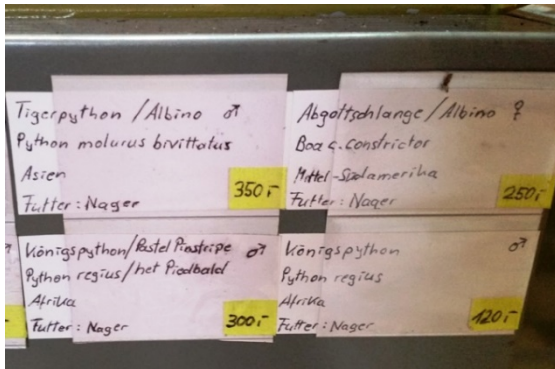 Tigerpython /Albino ♂
Python molurus bivittatus
Asien
350,-
Futter: Nager
Abgottschlange/Albino ♀
Boa c. constrictor
Mittel-Südamerika
250,-
Futter: Nager
Königspython/Pastel Pinstripe ♂
Python regius/het Piedbald
Afrika
300,-
Futter: Nager
Königspython ♂
Python regius
Afrika
120,-
Futter: Nager